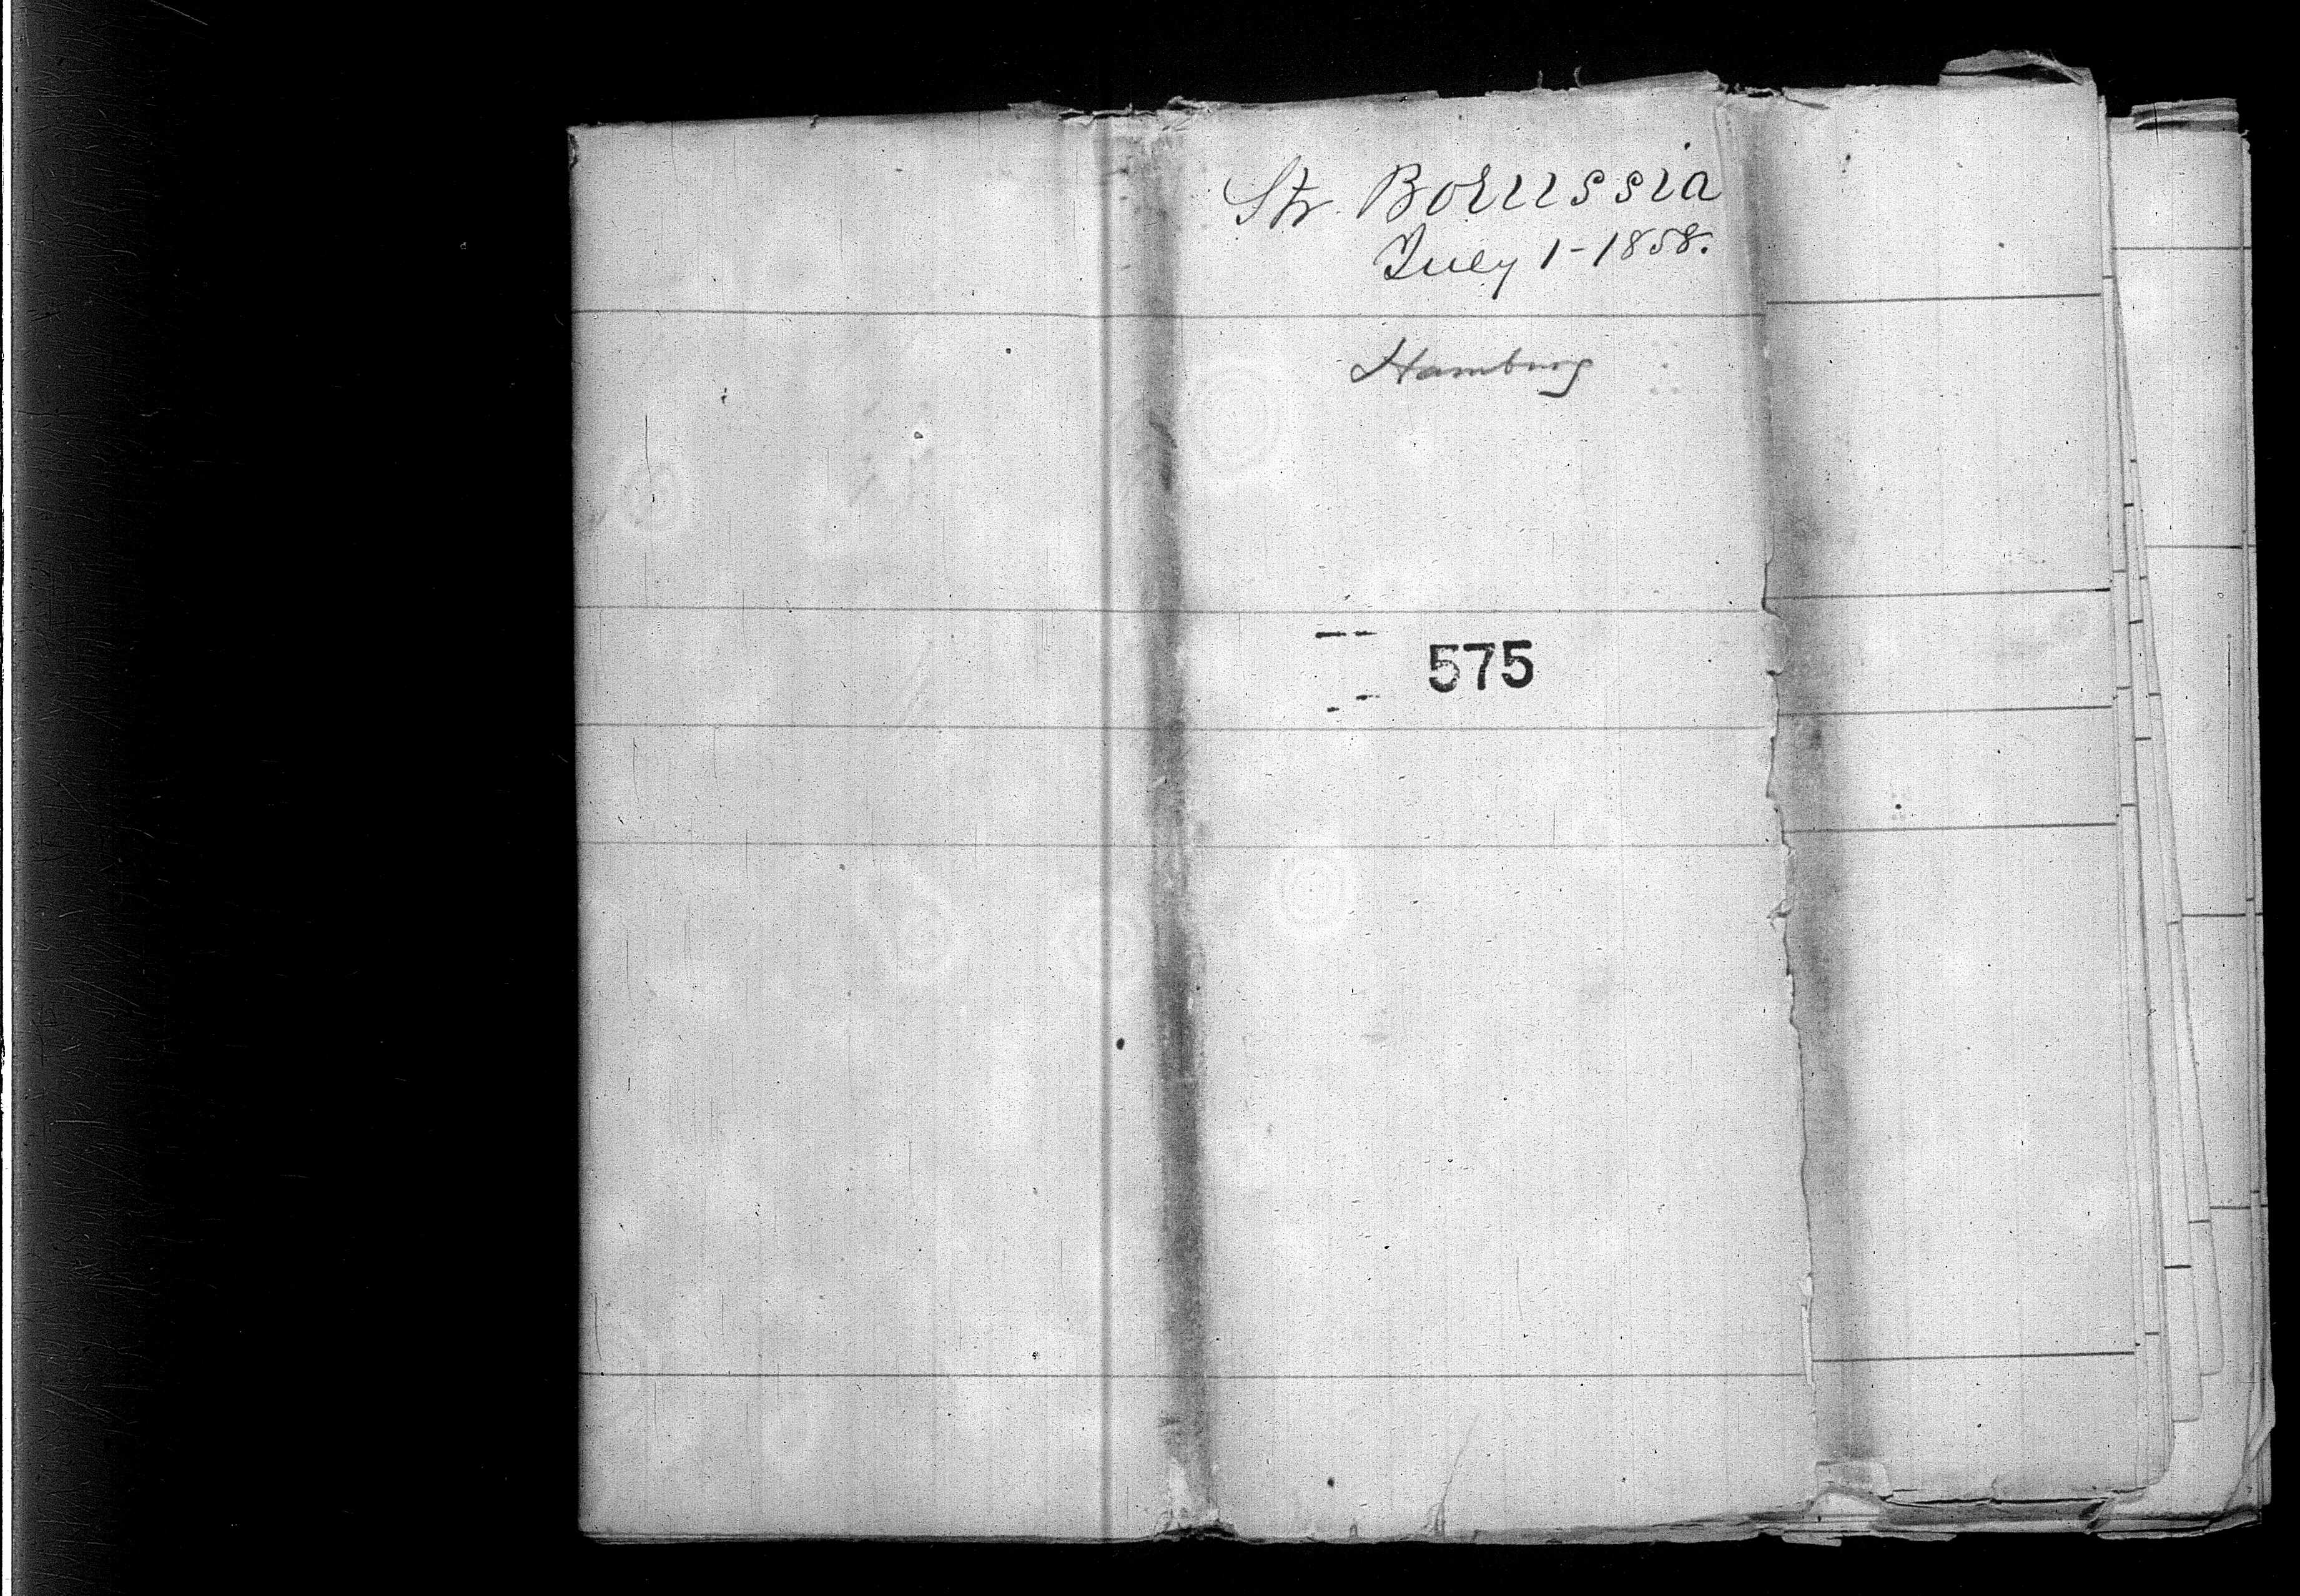 Str. Borussia
July 1-1858.
Hamburg
575